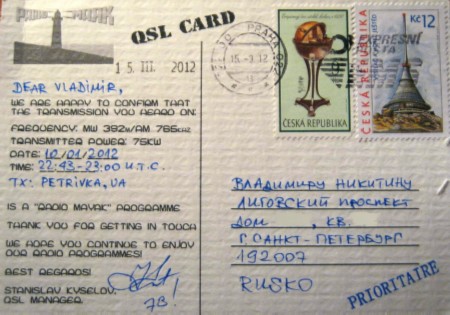 RADIO MAYAK
QSL CARD
15 III. 2012
DEAR VLADIMIR,
WE ARE HAPPY TO CONFIRM THAT
THE TRANSMISSION YOU HEARD ON:
FREQUENCY: MW 392M/AM 765KHZ
TRANSMITTER POWER: 75KW
DATE: 10/01/2012
TIME: 22:43-23:00 U.T.C.
TX: PETRIVKA, UA
IS A "RADIO MAYAK" PROGRAMME
THANK YOU FOR GETTING IN TOUCH
WE HOPE YOU CONTINUE TO ENJOY
OUR RADIO PROGRAMMES!
BEST REGARDS!
STANISLAV KYSELOV,
QSL MANAGER.
73!
PRAHA
15.-3.12
ČESKÁ REPUBLIKA
Kč 12
ČESKÁ REPUBLIKA
ВЛАДИМИРУ НИКИТИНУ
ЛИГОВСКИЙ ПРОСПЕКТ
ДОМ , КВ.
Г. САНКТ-ПЕТЕРБУРГ
192007
RUSKO
PRIORITAIRE